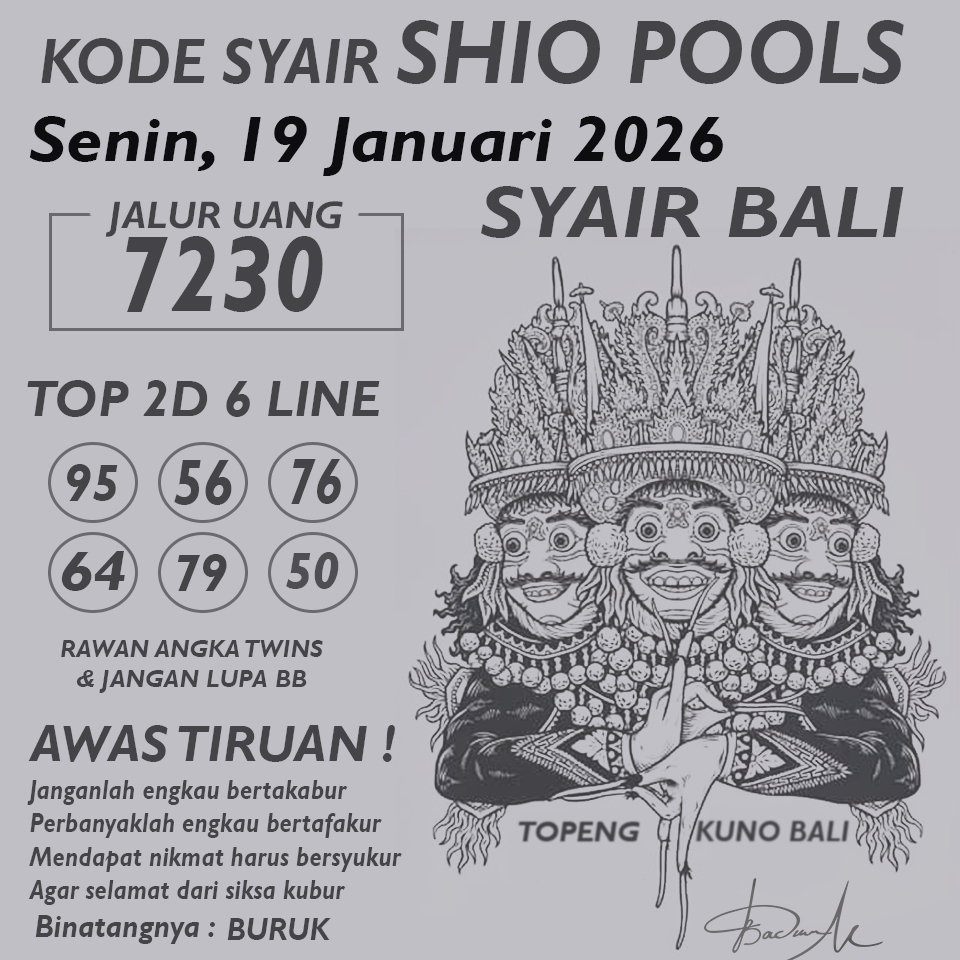 KODE SYAIR SHIO POOLS
Senin, 19 Januari 2026
SYAIR BALI
JALUR UANG
7230
TOP 2D 6 LINE
95 56 76
64 79 50
RAWAN ANGKA TWINS
& JANGAN LUPA BB
AWAS TIRUAN !
Janganlah engkau bertakabur
Perbanyaklah engkau bertafakur
Mendapat nikmat harus bersyukur
Agar selamat dari siksa kubur
Binatangnya : BURUK
TOPENG KUNO BALI